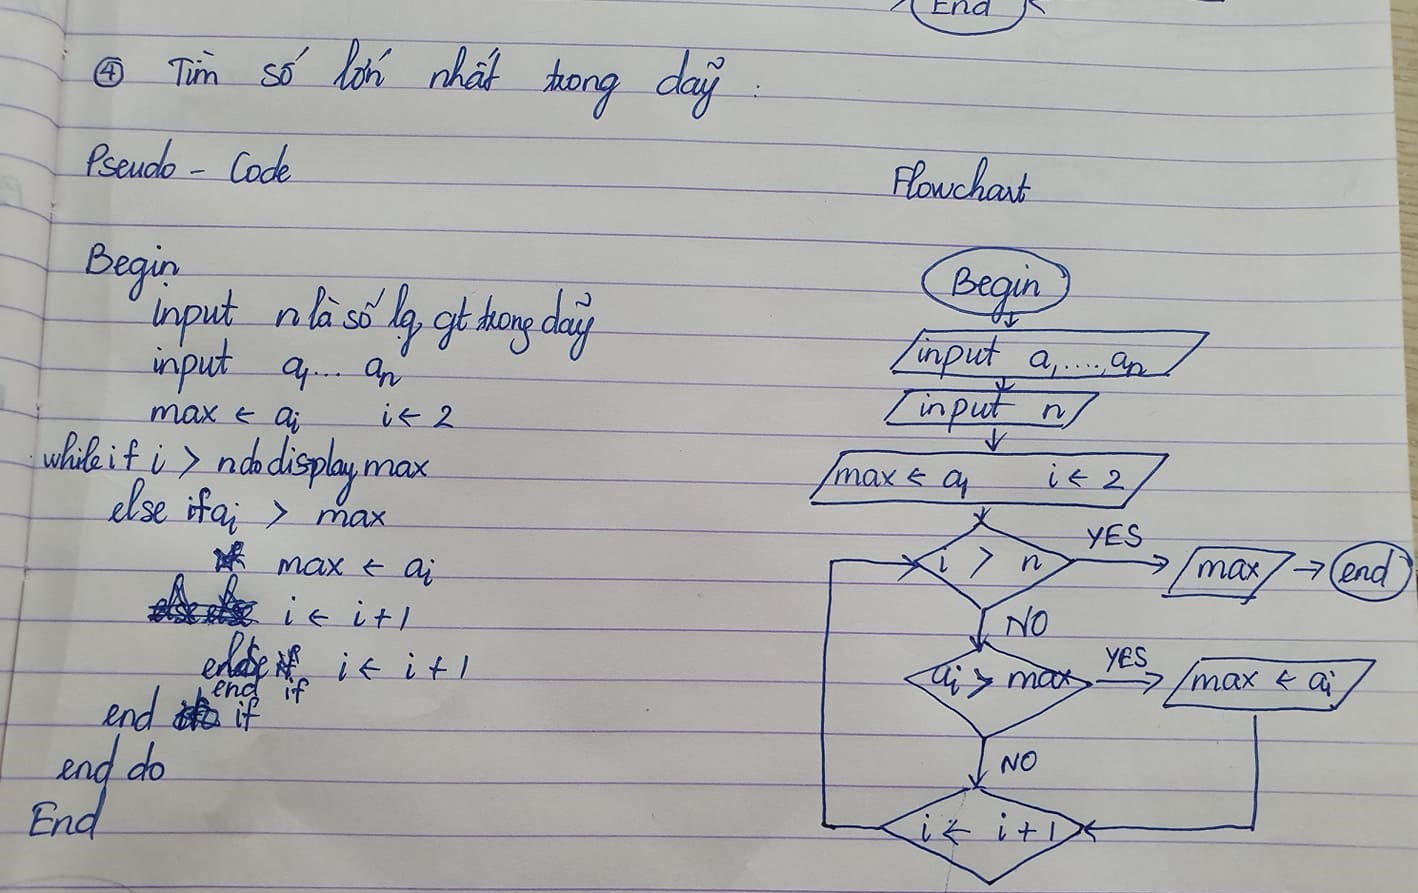 End
④ Tìm số lớn nhất trong dãy :
Pseudo - Code
Begin
input n là số lg, gt trong dãy
input a₁... aₙ
max ← aᵢ i ← 2
while if i > n do display max
else if aᵢ > max
max ← aᵢ
i ← i + 1
else if i ← i + 1
end if
end if
end do
End
Flowchart
Begin
input a₁, ...., aₙ
input n
max ← a₁ i ← 2
i > n YES max → end
NO
aᵢ > max YES max ← aᵢ
NO
i ← i + 1